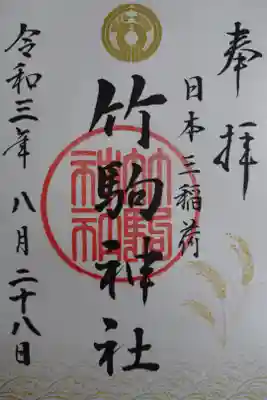 奉拝
日本三稲荷
竹駒神社
竹駒神社
令和三年八月二十八日